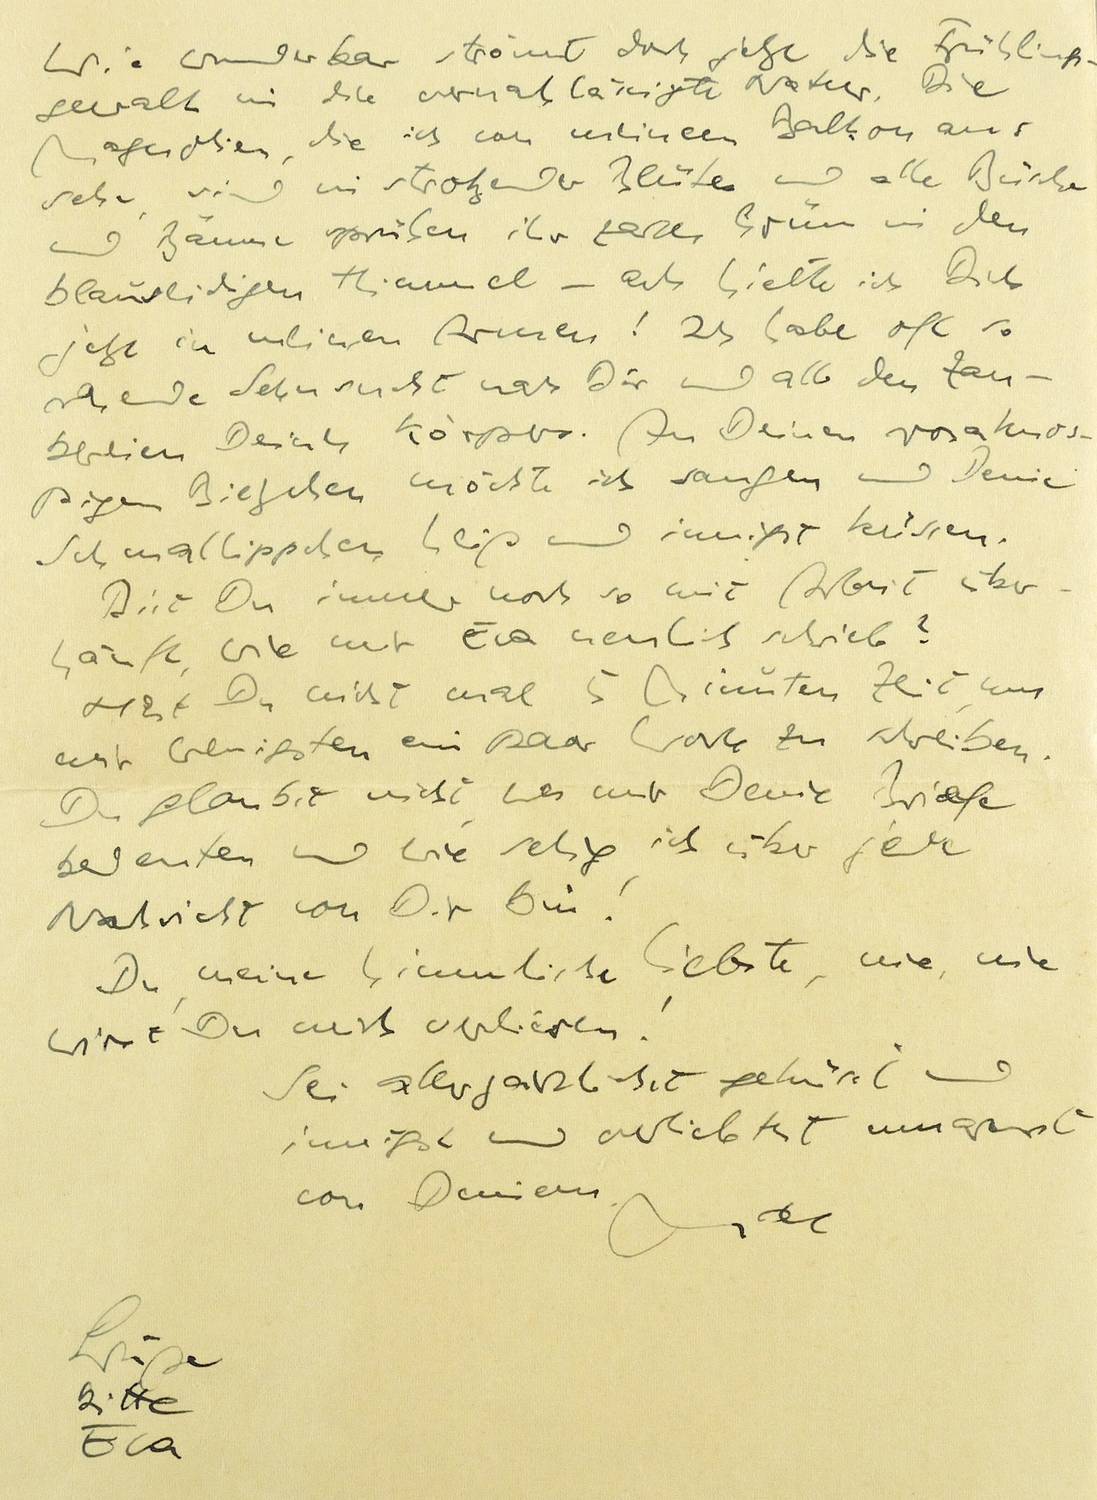 Wie wunderbar strömt doch jetzt die Frühlings-
gewalt in die vernachlässigte Natur. Die
Magnolien, die ich von meinem Balkon aus
sehe, sind in strotzender Blüte und alle Büsche
und Bäume sprühen ihr zartes Grün in den
blauseidigen Himmel – ach hielte ich Dich
jetzt in meinen Armen! Ich habe oft so
rasende Sehnsucht nach Dir und all den Zau-
bereien Deines Körpers. An Deinen rosaknos-
pigen möchte ich saugen und Deine
Schmallippchen heiß und innigst küssen.
Bist Du immer noch so mit Arbeit über-
häuft, wie mir Eva neulich schrieb?
Hast Du nicht mal 5 Minuten Zeit, um
mir wenigsten ein paar Worte zu schreiben.
Du glaubst nicht, was mir Deine Briefe
bedeuten und wie selig ich über jede
Nachricht von Dir bin!
Du, meine himmlische Liebste, nie, nie
wirst Du mich verlieren!
Sei allerzärtlichst geküsst und
innigst und verliebtest umarmt
von Deinem
Grüße
Bitte
Eva